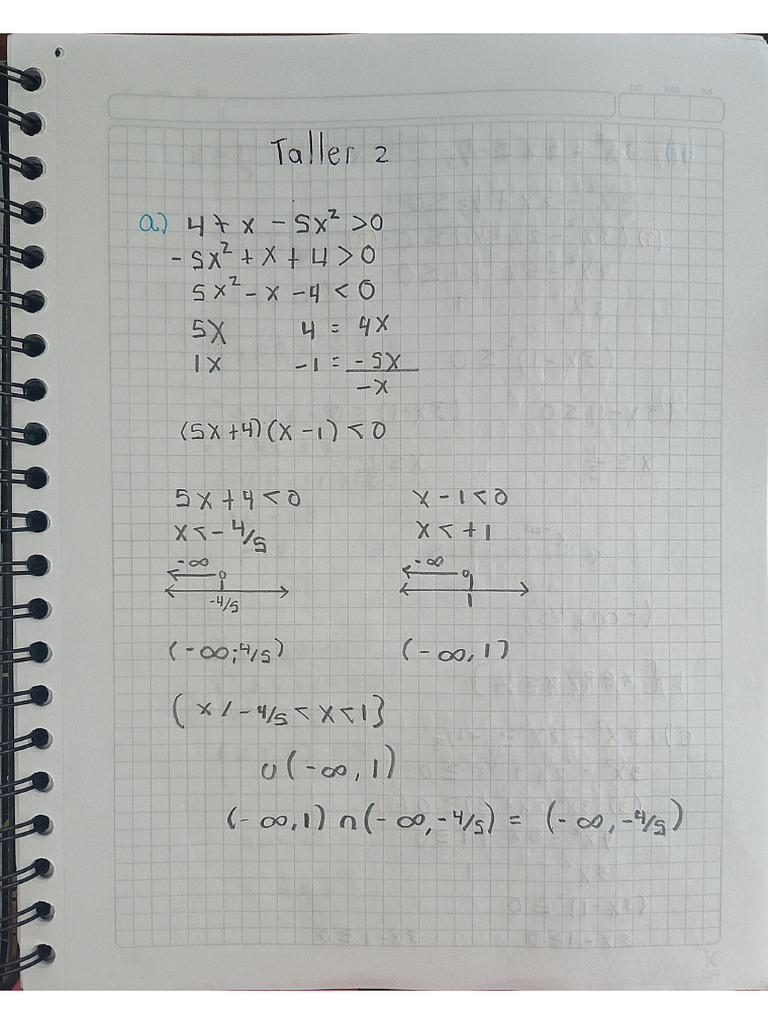 Taller 2
a) 4 + x - 5x² > 0
- 5x² + x + 4 > 0
5x² - x - 4 < 0
5x 4 = 4x
1x -1 = -5x
-x
(5x+4)(x-1) < 0
5x + 4 < 0 x - 1 < 0
x < - 4/5 x < + 1
-∞ -∞
-4/5 1
(-∞; 4/5) (-∞, 1)
{ x / - 4/5 < x < 1 }
∪ (-∞, 1)
(-∞, 1) ∩ (-∞, -4/5) = (-∞, -4/5)